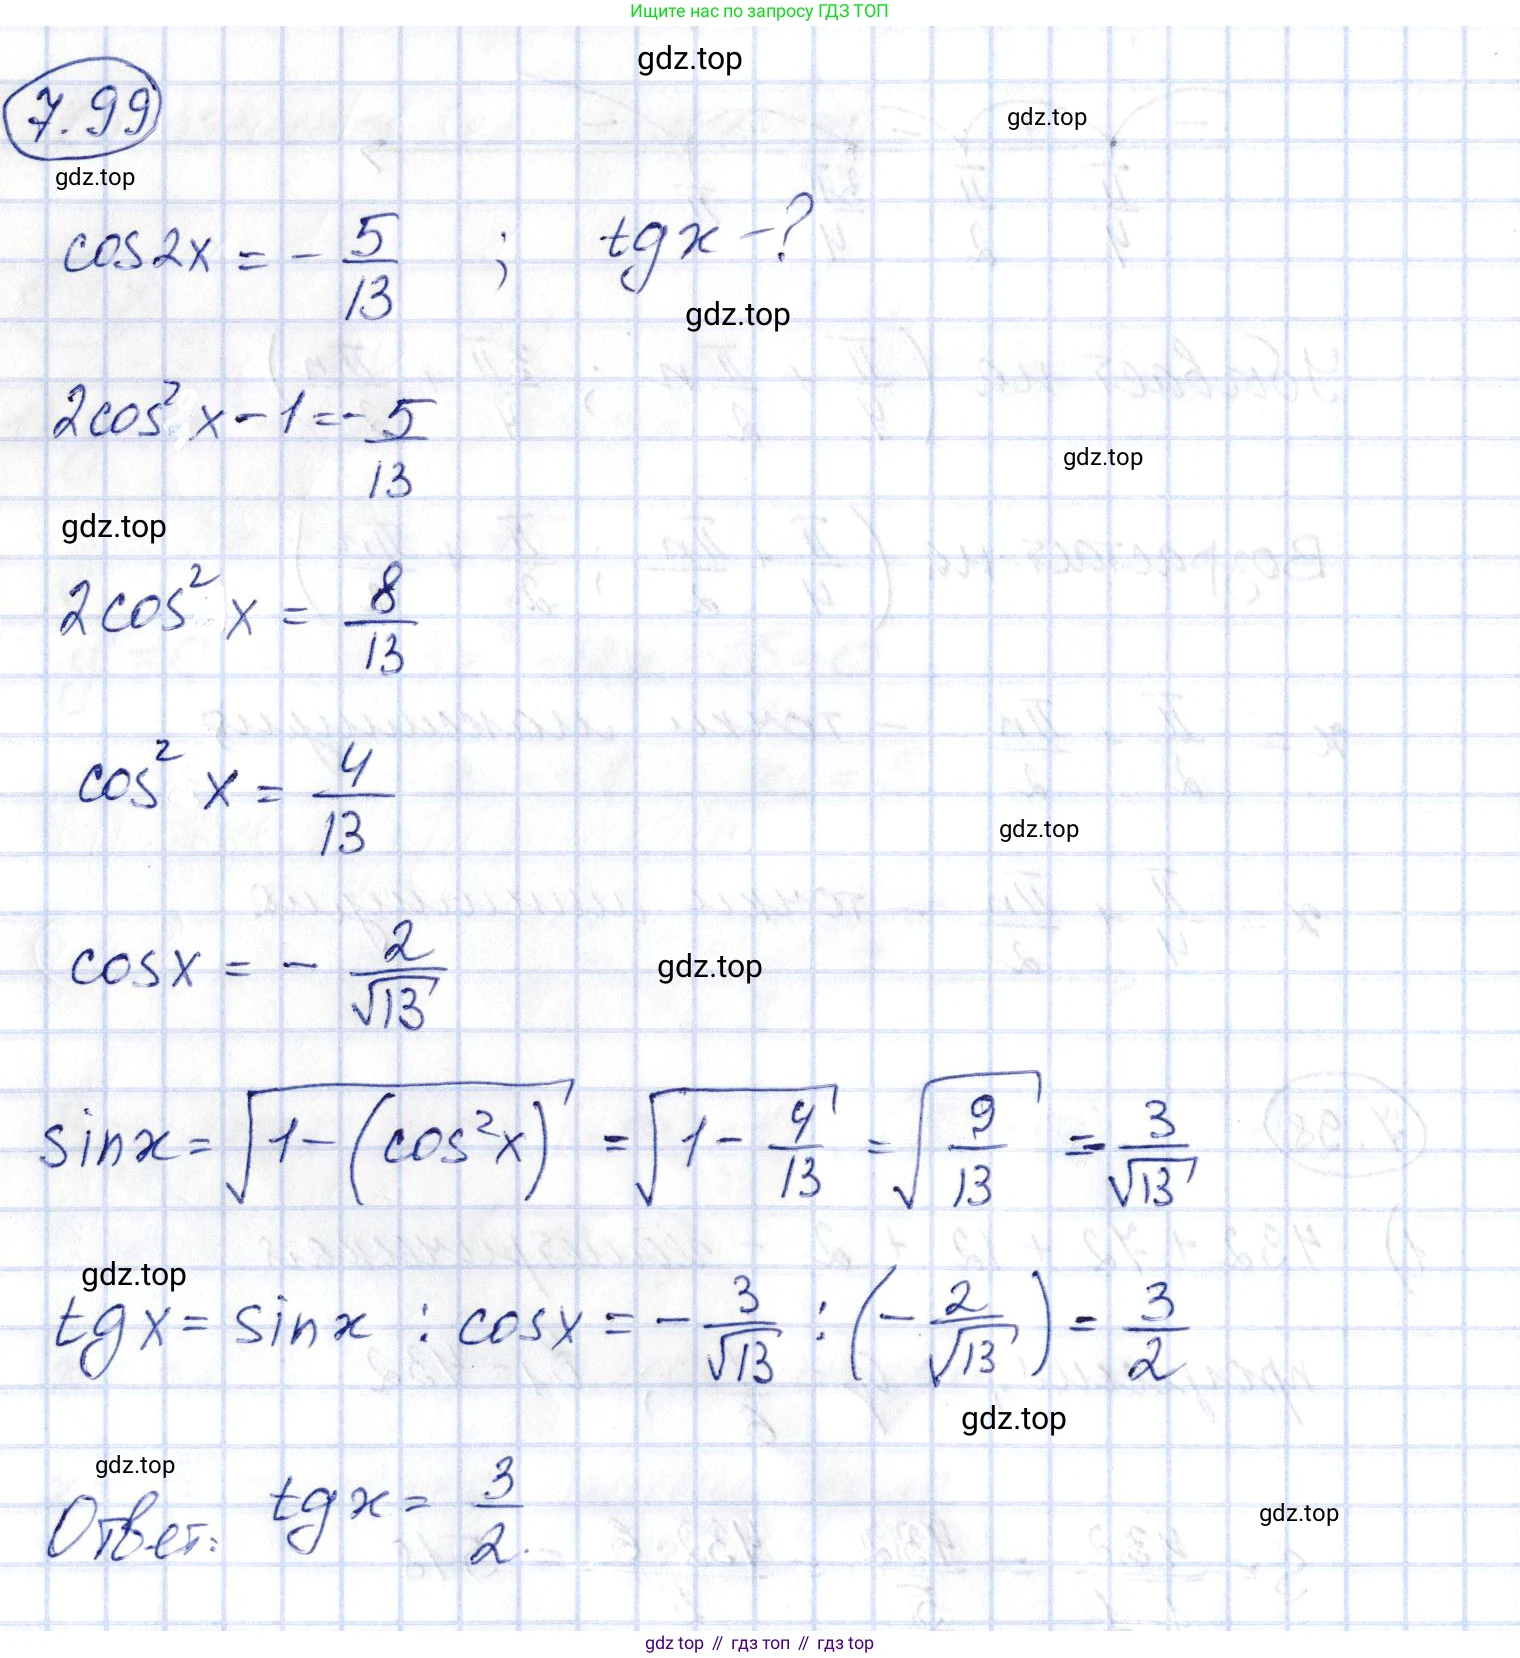 Ищите нас по запросу ГДЗ ТОП
gdz.top
7.99
gdz.top
gdz.top
cos2x = - 5/13 ; tgx - ?
gdz.top
2cos² x - 1 = - 5/13
gdz.top
gdz.top
2cos² x = 8/13
cos² x = 4/13
gdz.top
cosx = - 2/√13
gdz.top
sinx = √(1 - (cos²x)) = √(1 - 4/13) = √(9/13) = 3/√13
gdz.top
tgx = sinx : cosx = - 3/√13 : (- 2/√13) = 3/2
gdz.top
gdz.top
Ответ: tgx = 3/2.
gdz.top
gdz top // гдз топ // гдз top